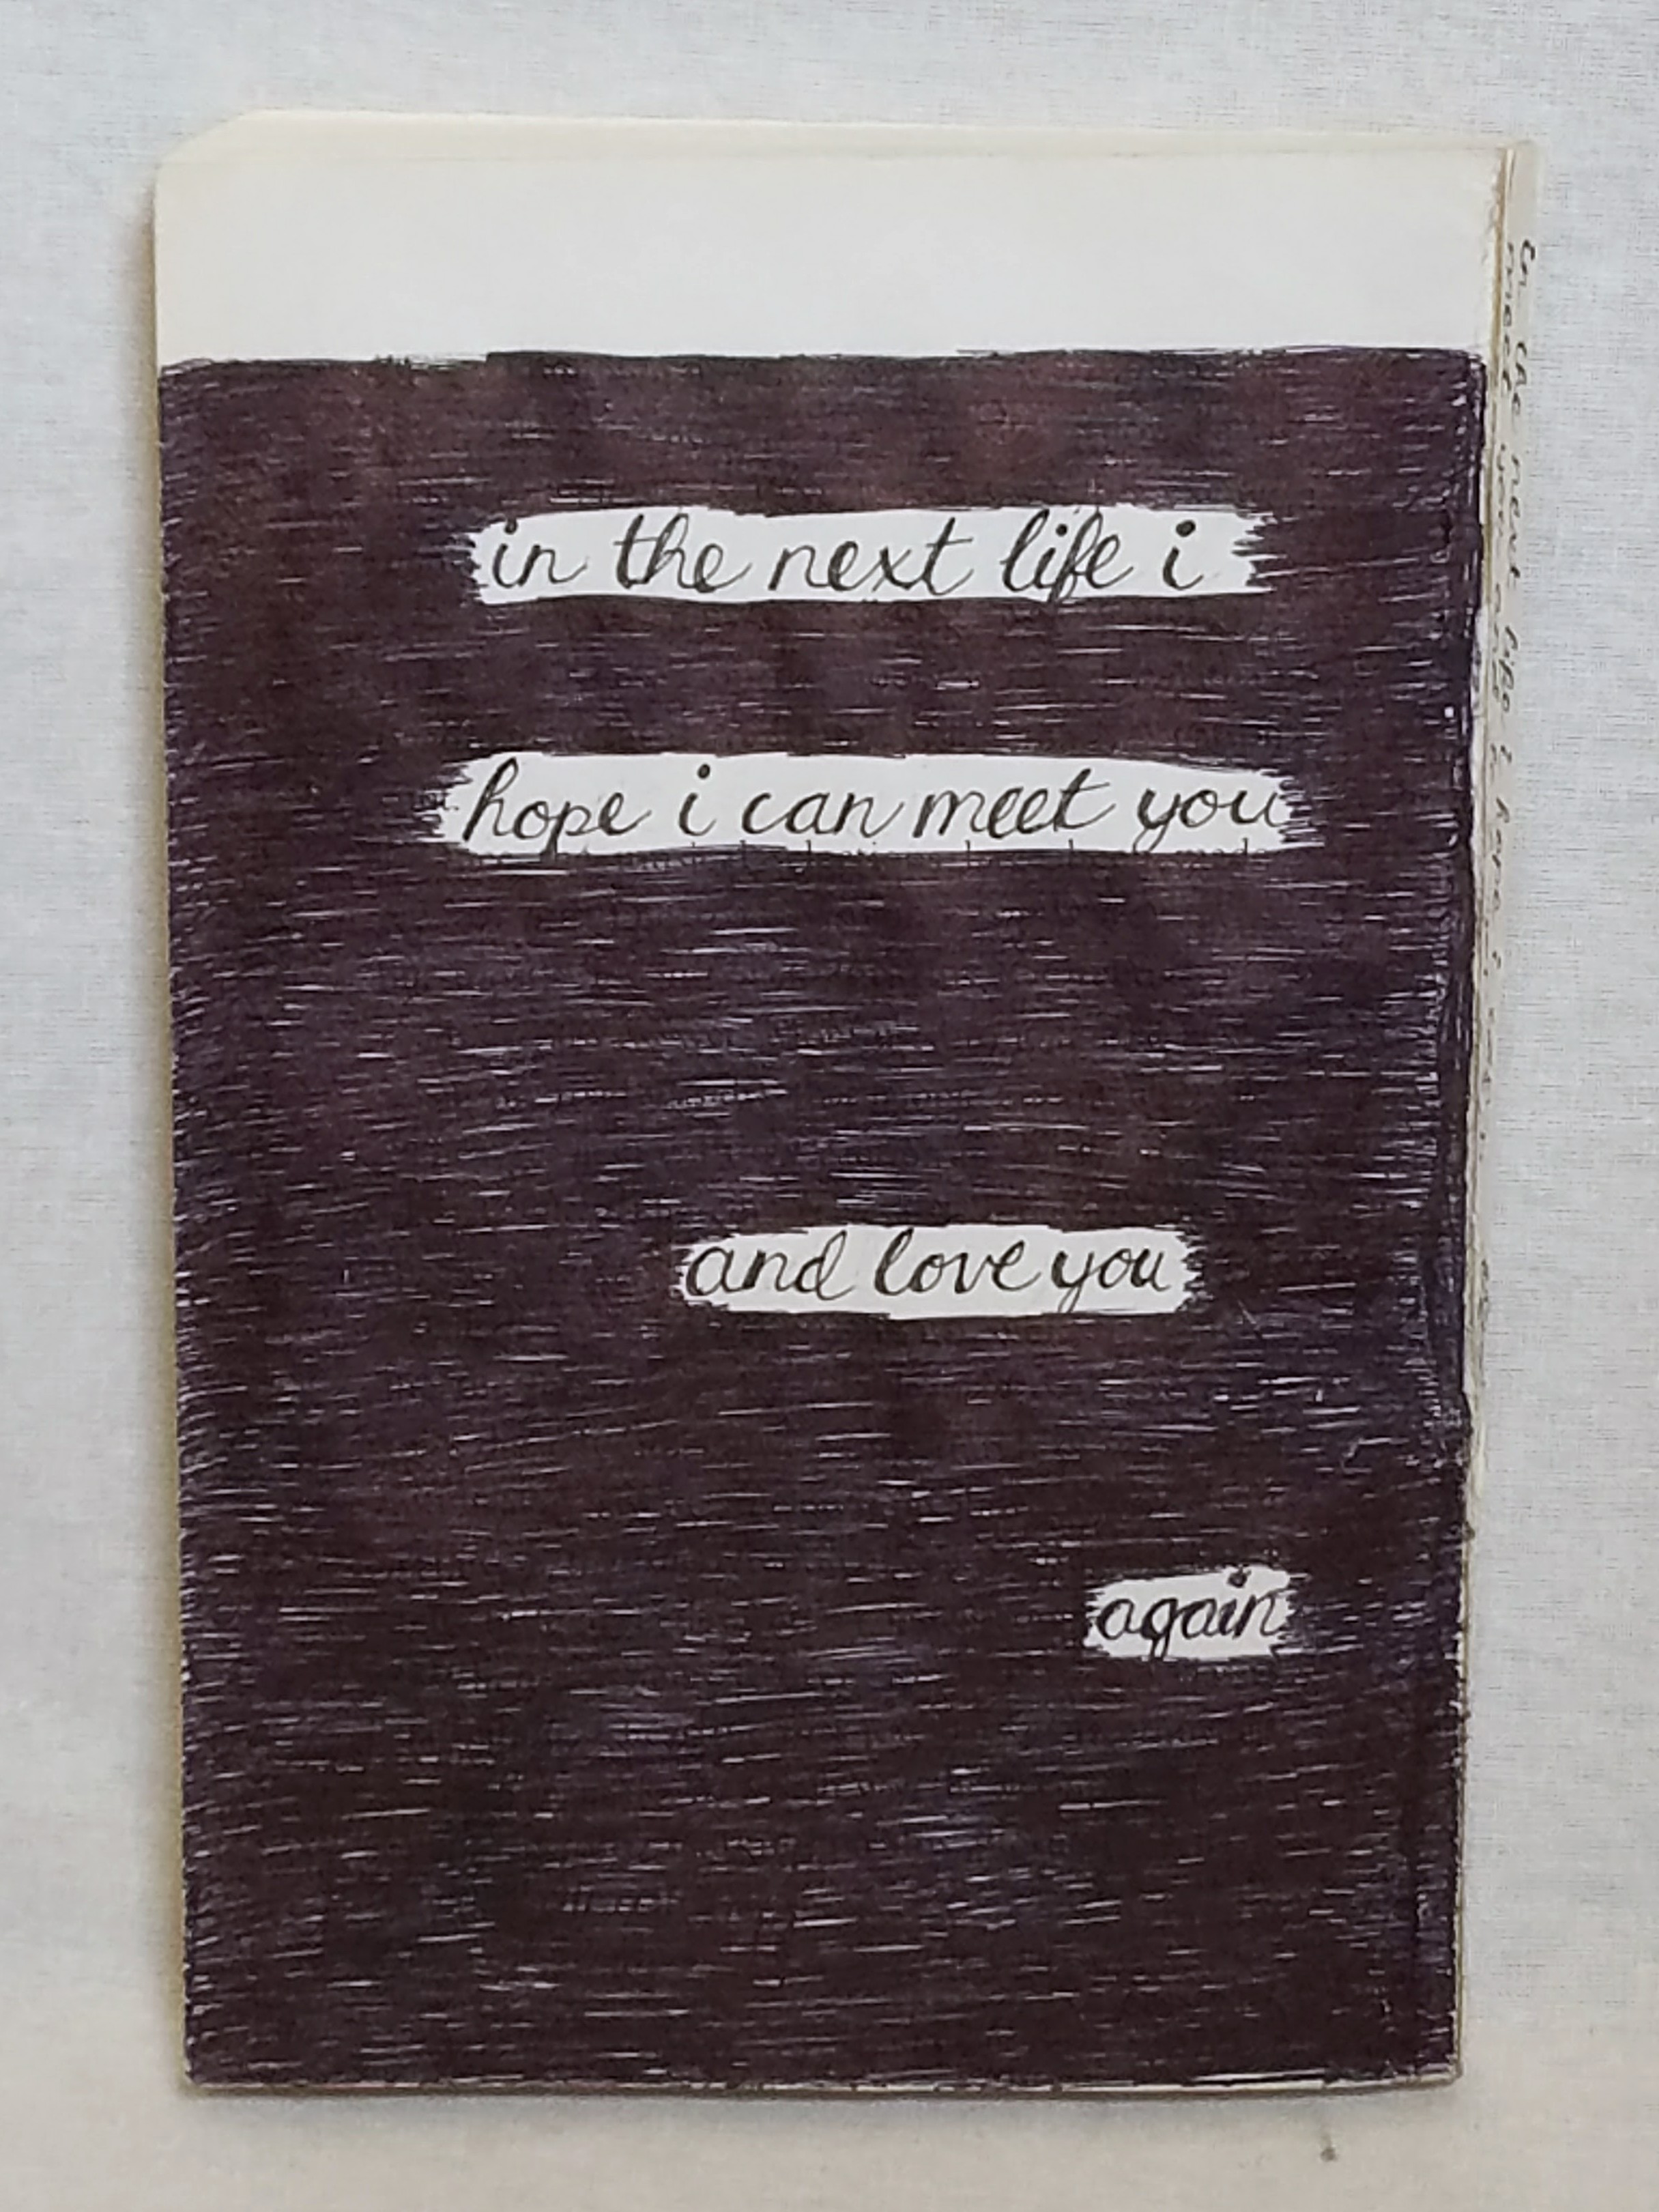 in the next life i
hope i can meet you
and love you
again
in the next life i hope i
meet you